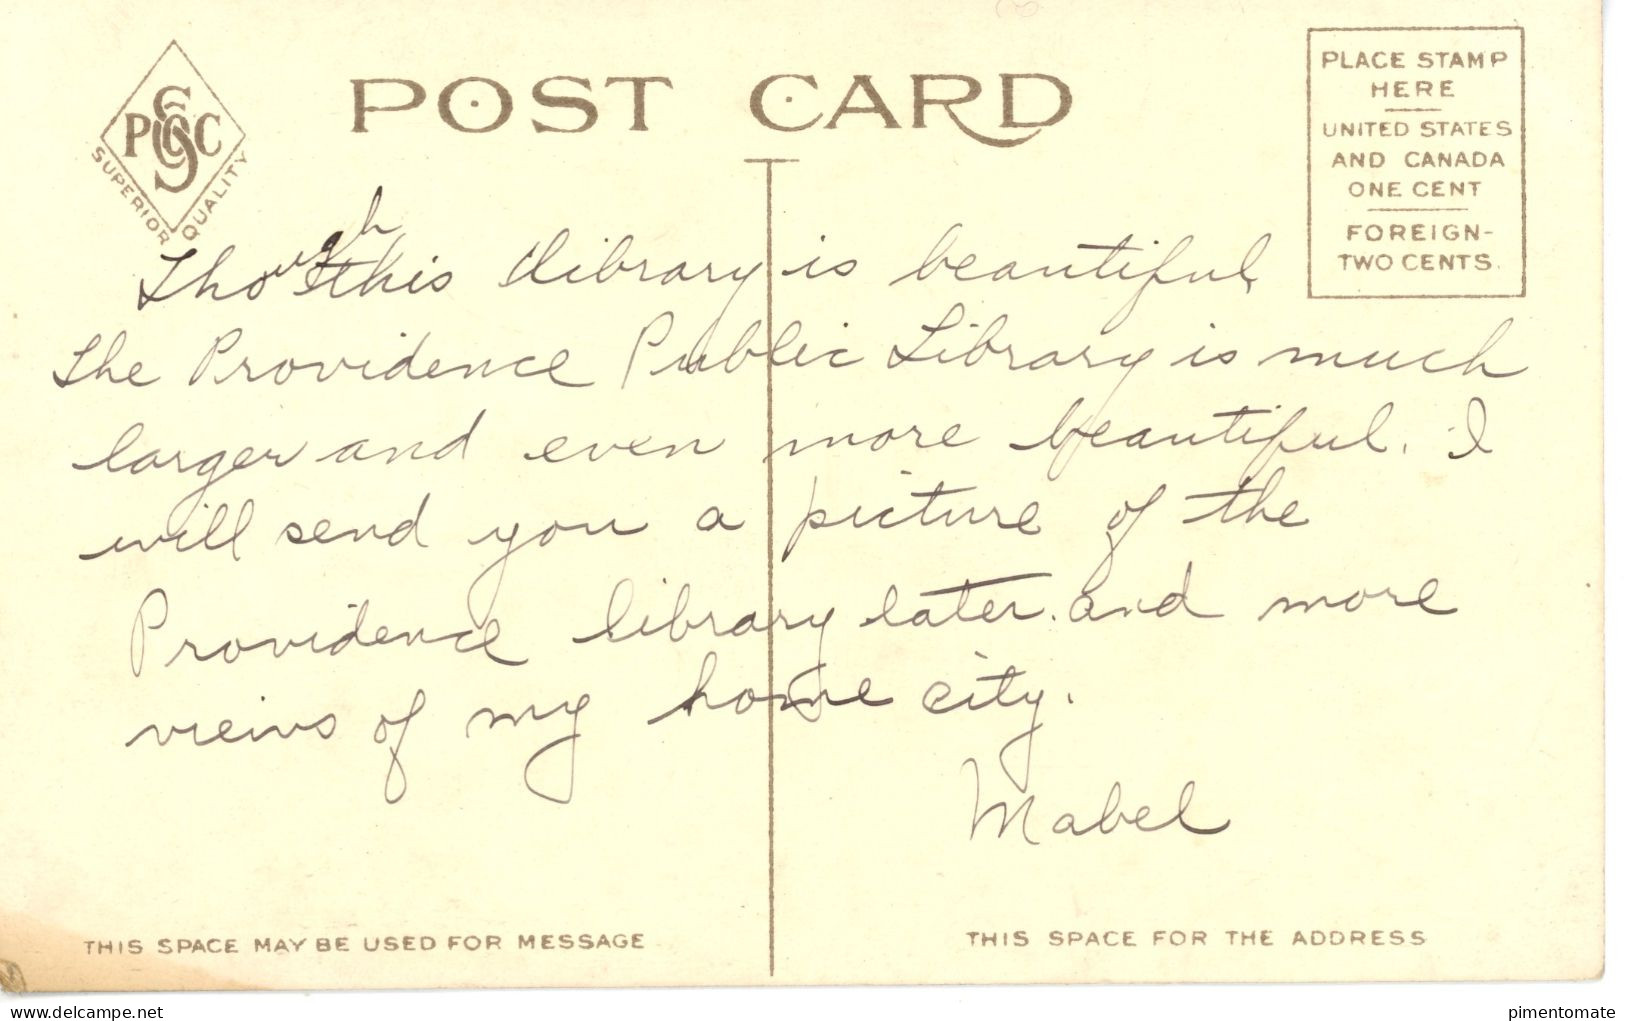 POST CARD
PSCC
SUPERIOR QUALITY
PLACE STAMP
HERE
UNITED STATES
AND CANADA
ONE CENT
FOREIGN-
TWO CENTS.
Though this library is beautiful,
the Providence Public Library is much
larger and even more beautiful. I
will send you a picture of the
Providence library later. and more
views of my home city.
Mabel
THIS SPACE MAY BE USED FOR MESSAGE
THIS SPACE FOR THE ADDRESS
www.delcampe.net
pimentomate